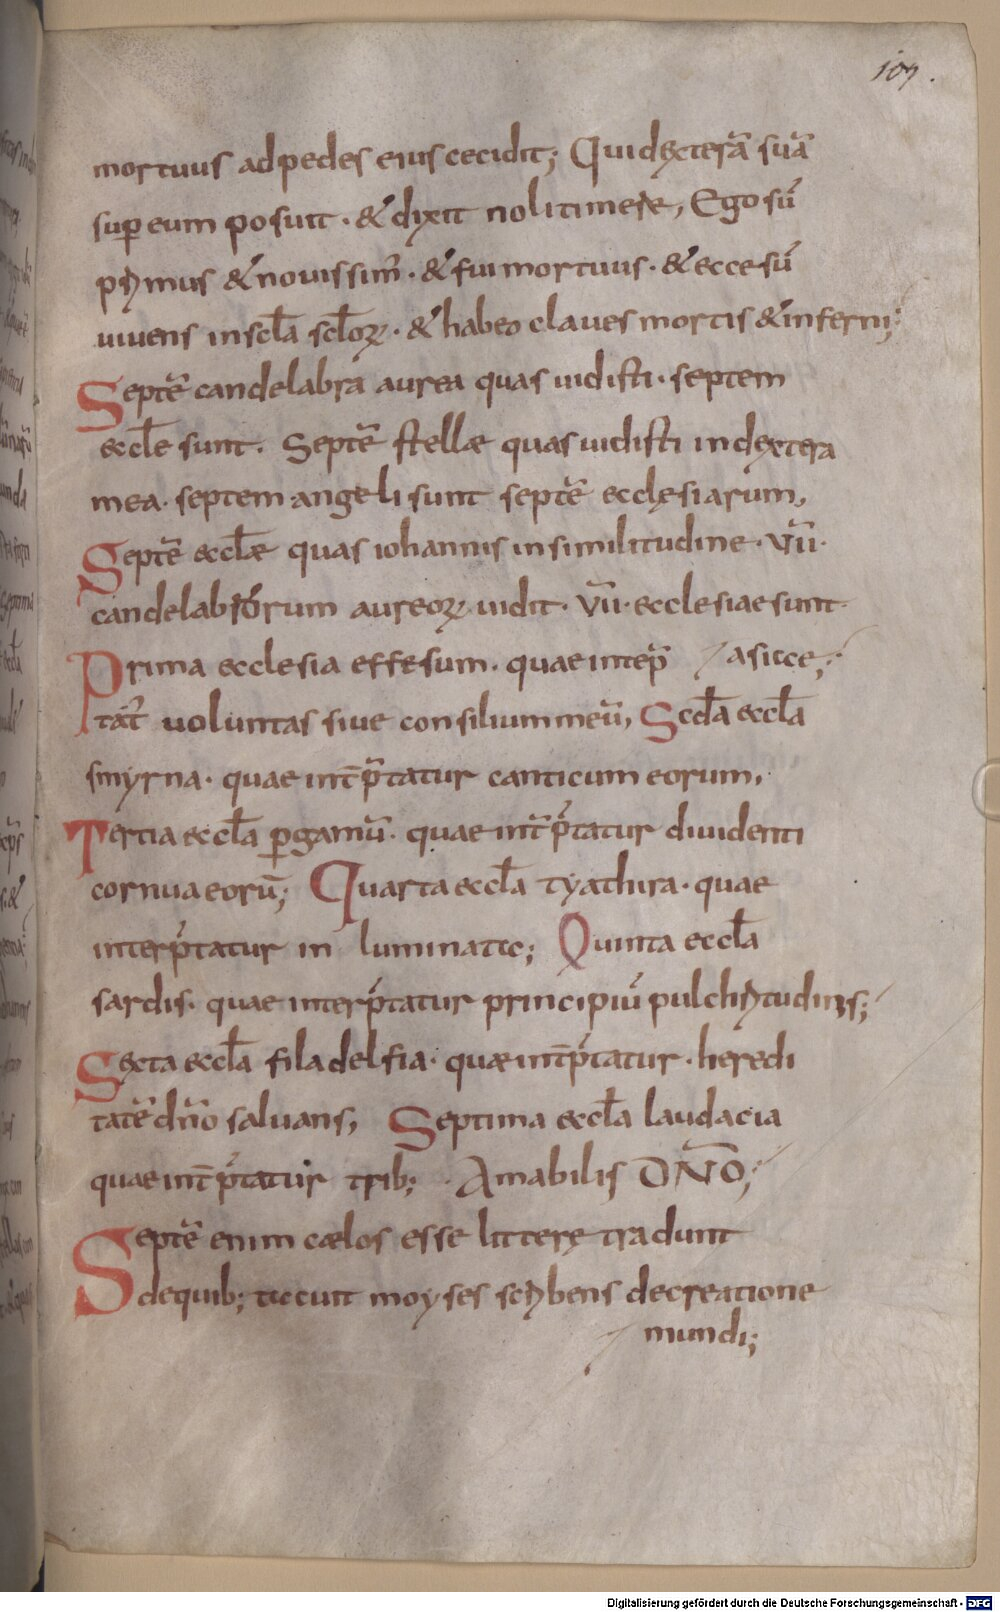 109.
mortuus ad pedes eius cecidit; Qui dexterā suā
super eum posuit · & dixit noli timere, Ego sū
primus & nouissim̄ · & fui mortuus · & ecce sū
uiuens in scl̄a scl̄oꝝ · & habeo claues mortis & inferni;
Septē candelabra aurea quas uidisti · septem
eccl̄e sunt. Septē stellae quas uidisti in dextera
mea · septem angeli sunt septē ecclęsiarum,
Septē eccl̄ae quas iohannis in similitudine · VII ·
candelabrorum aureoꝝ uidit · VII · ecclesiae sunt ·
Prima ecclesia effesum · quae interp̄ / asicce;
tat̄ uoluntas siue consilium meū, Scd̄a eccl̄a
smyrna · quae int̄p̄tatur canticum eorum,
Tertia eccl̄a ꝑgamū · quae int̄p̄tatur diuidenti
cornua eorū; Quarta eccl̄a tyathira · quae
interp̄tatur in luminatic; Quinta eccl̄a
sardis · quae interp̄tatur principiū pulchritudinis;
Sexta eccl̄a filadelfia · quae int̄p̄tatur · heredi
tatē dn̄o saluans, Septima eccl̄a laudacia
quae int̄p̄tatur trib; · Amabilis DN̄O;
Septē enim caelos esse litterę tradunt
de quib; ticcuit moyses scribens de creatione
mundi;
Digitalisierung gefördert durch die Deutsche Forschungsgemeinschaft · DFG